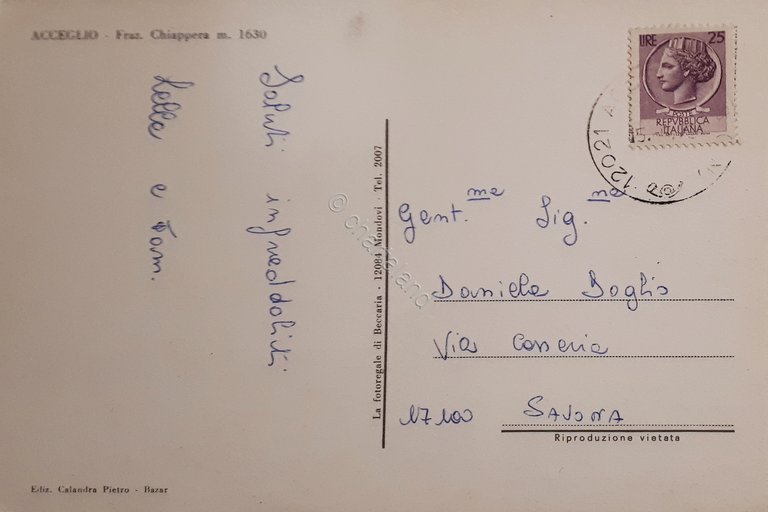 ACCEGLIO - Fraz. Chiappera m. 1630
Saluti infreddoliti
Lella e Fam.
La fotoregale di Beccaria - 12084 Mondovì - Tel. 2007
© charta.land
LIRE 25
POSTE
REPVBBLICA
ITALIANA
12021 A
Gent.me Sig.na
Daniela Boglio
Via Cosseria
17100 SAVONA
Riproduzione vietata
Ediz. Calandra Pietro - Bazar